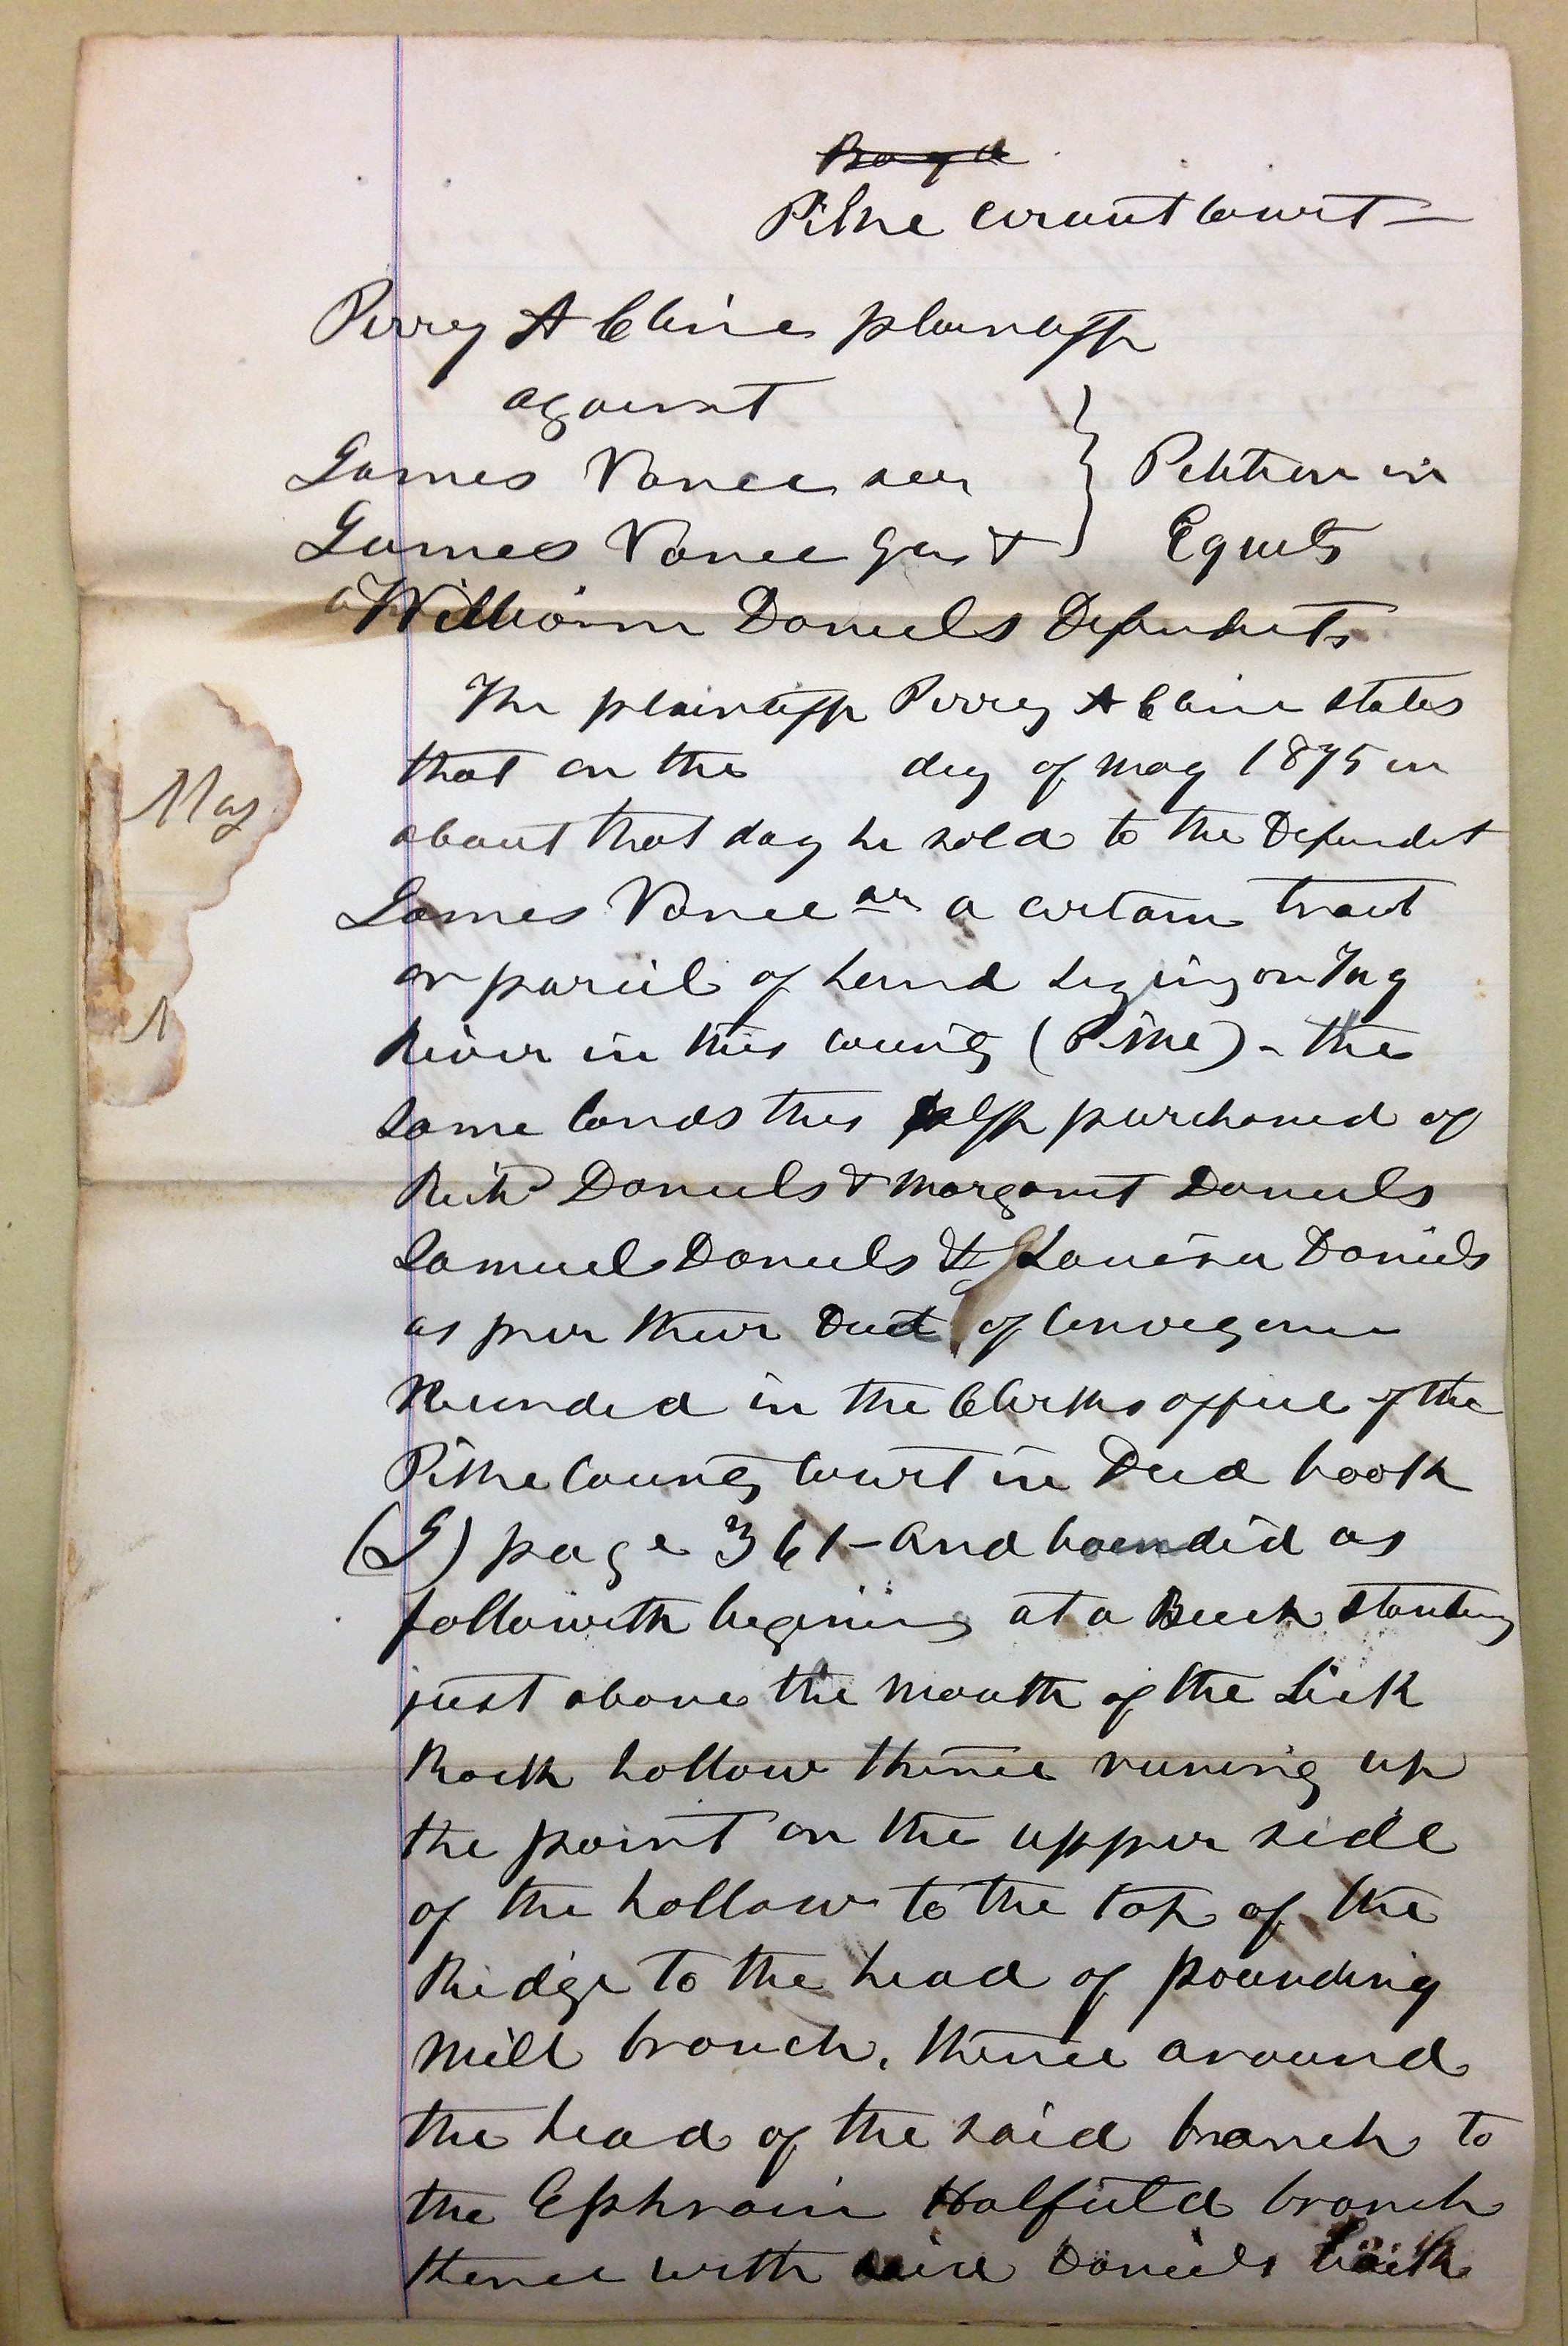 Boyd
Pike Circuit Court —
Perry A Cline plaintiff
against
James Vance senr
James Vance Jr &
Petition in
Equity
William Daniels Defendants
The plaintiff Perry A Cline states
that on the day of May 1875 or
about that day he sold to the Defendet
James Vance sr a certain tract
or parcel of Land Lying on Tug
River in this county (Pike) - the
same lands this plff purchased of
Daniels & Margaret Daniels
Samuel Daniels & Louisa Daniels
as per their Deed of Conveyance
Recorded in the Clerks office of the
Pike County Court in Deed book
(G) page 361 - and bounded as
followith begining at a Beech standing
just above the mouth of the Lick
Rock hollow thence runing up
the point on the upper side
of the hollow to the top of the
Ridge to the head of pounding
mill branch. thence around
the head of the said branch to
the Ephraim Hatfield branch
thence with said Daniels
May